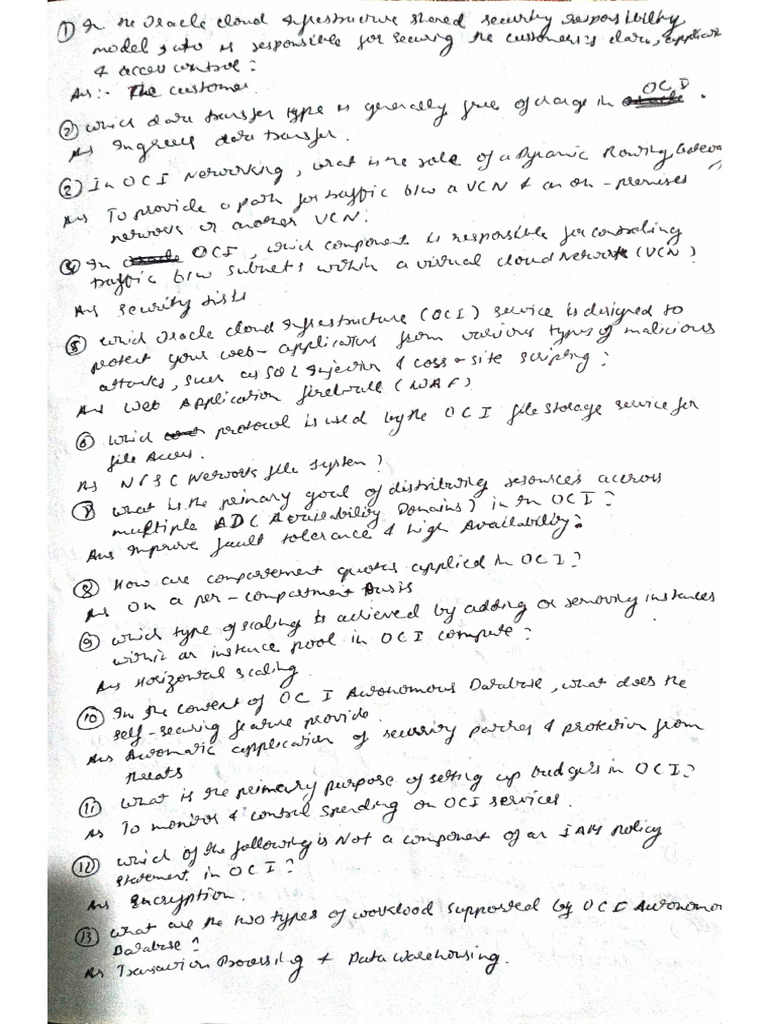 ① In the Oracle cloud Infrastructure shared security responsibility
model, who is responsible for securing the customer's data, applicat
& access control?
Ans:- The customer
② Which data transfer type is generally free of charge in OCI.
Ans Ingress data transfer.
② In OCI Networking, what is the role of a Dynamic Routing Gateway
Ans To provide a path for traffic b/w a VCN & an on-premises
network or another VCN.
④ In OCI, which component is responsible for controlling
traffic b/w subnets within a virtual cloud Network (VCN)?
Ans Security Lists
⑤ Which Oracle cloud Infrastructure (OCI) service is designed to
protect your web-applications from various types of malicious
attacks, such as SQL Injection & cross-site scripting?
Ans Web Application firewall (WAF)
⑥ Which protocol is used by the OCI file storage service for
file Access.
Ans Network file system?
⑦ What is the primary goal of distributing resources accross
multiple AD (Availability Domains) in an OCI?
Ans Improve fault tolerance & high Availability?
⑧ How are compartment quotas applied in OCI?
Ans On a per-compartment basis
⑨ Which type of scaling is achieved by adding or removing instances
within an instance pool in OCI compute?
Ans Horizontal scaling
⑩ In the context of OCI Autonomous Database, what does the
self-securing feature provide.
Ans Automatic application of security patches & protection from
threats
⑪ What is the primary purpose of setting up budgets in OCI?
Ans To monitor & control spending on OCI services.
⑫ Which of the following is Not a component of an IAM policy
statement in OCI?
Ans Encryption.
⑬ What are the two types of workload supported by OCI Autonomo
Database?
Ans Transaction Processing & Data Warehousing.